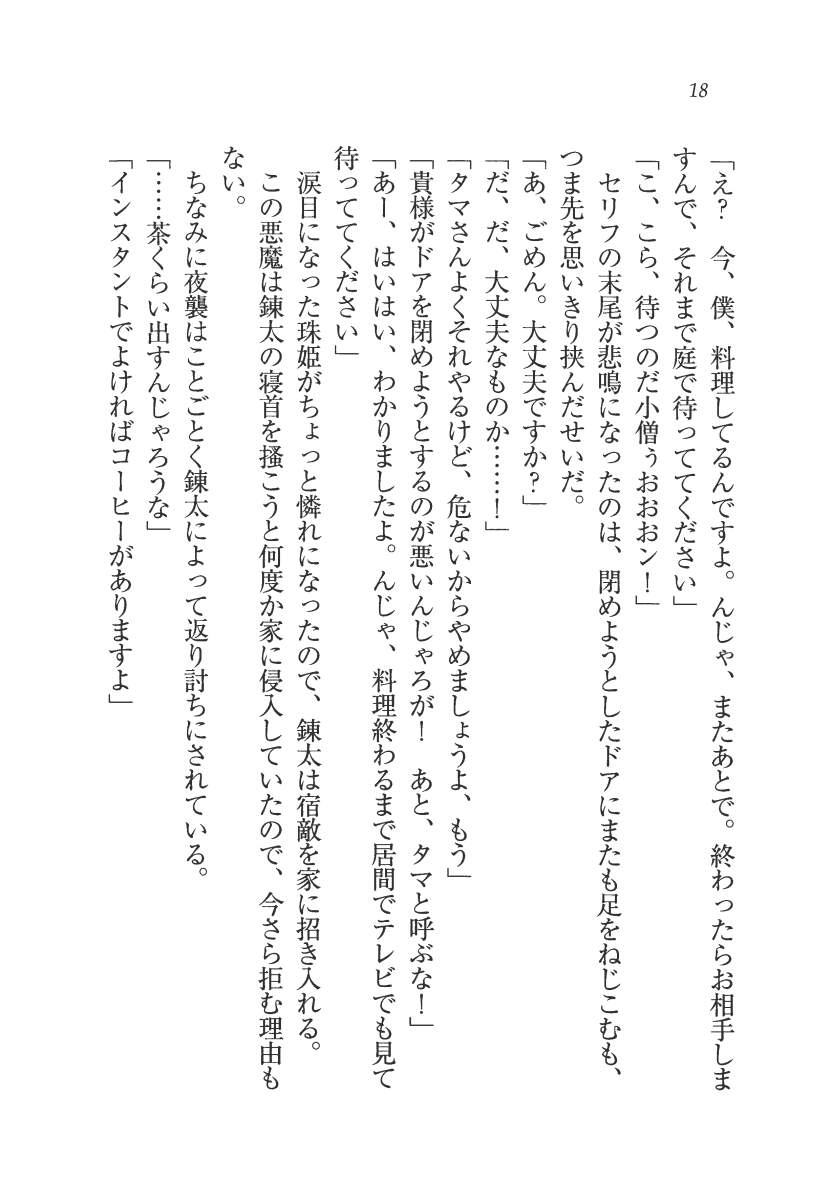 18
「え?　今、僕、料理してるんですよ。んじゃ、またあとで。終わったらお相手しま
すんで、それまで庭で待っててください」
「こ、こら、待つのだ小僧ぅおおおン!」
　セリフの末尾が悲鳴になったのは、閉めようとしたドアにまたも足をねじこむも、
つま先を思いきり挟んだせいだ。
「あ、ごめん。大丈夫ですか?」
「だ、だ、大丈夫なものか……!」
「タマさんよくそれやるけど、危ないからやめましょうよ、もう」
「貴様がドアを閉めようとするのが悪いんじゃろが!　あと、タマと呼ぶな!」
「あー、はいはい、わかりましたよ。んじゃ、料理終わるまで居間でテレビでも見て
待っててください」
　涙目になった珠姫がちょっと憐れになったので、錬太は宿敵を家に招き入れる。
　この悪魔は錬太の寝首を掻こうと何度か家に侵入していたので、今さら拒む理由も
ない。
　ちなみに夜襲はことごとく錬太によって返り討ちにされている。
「……茶くらい出すんじゃろうな」
「インスタントでよければコーヒーがありますよ」